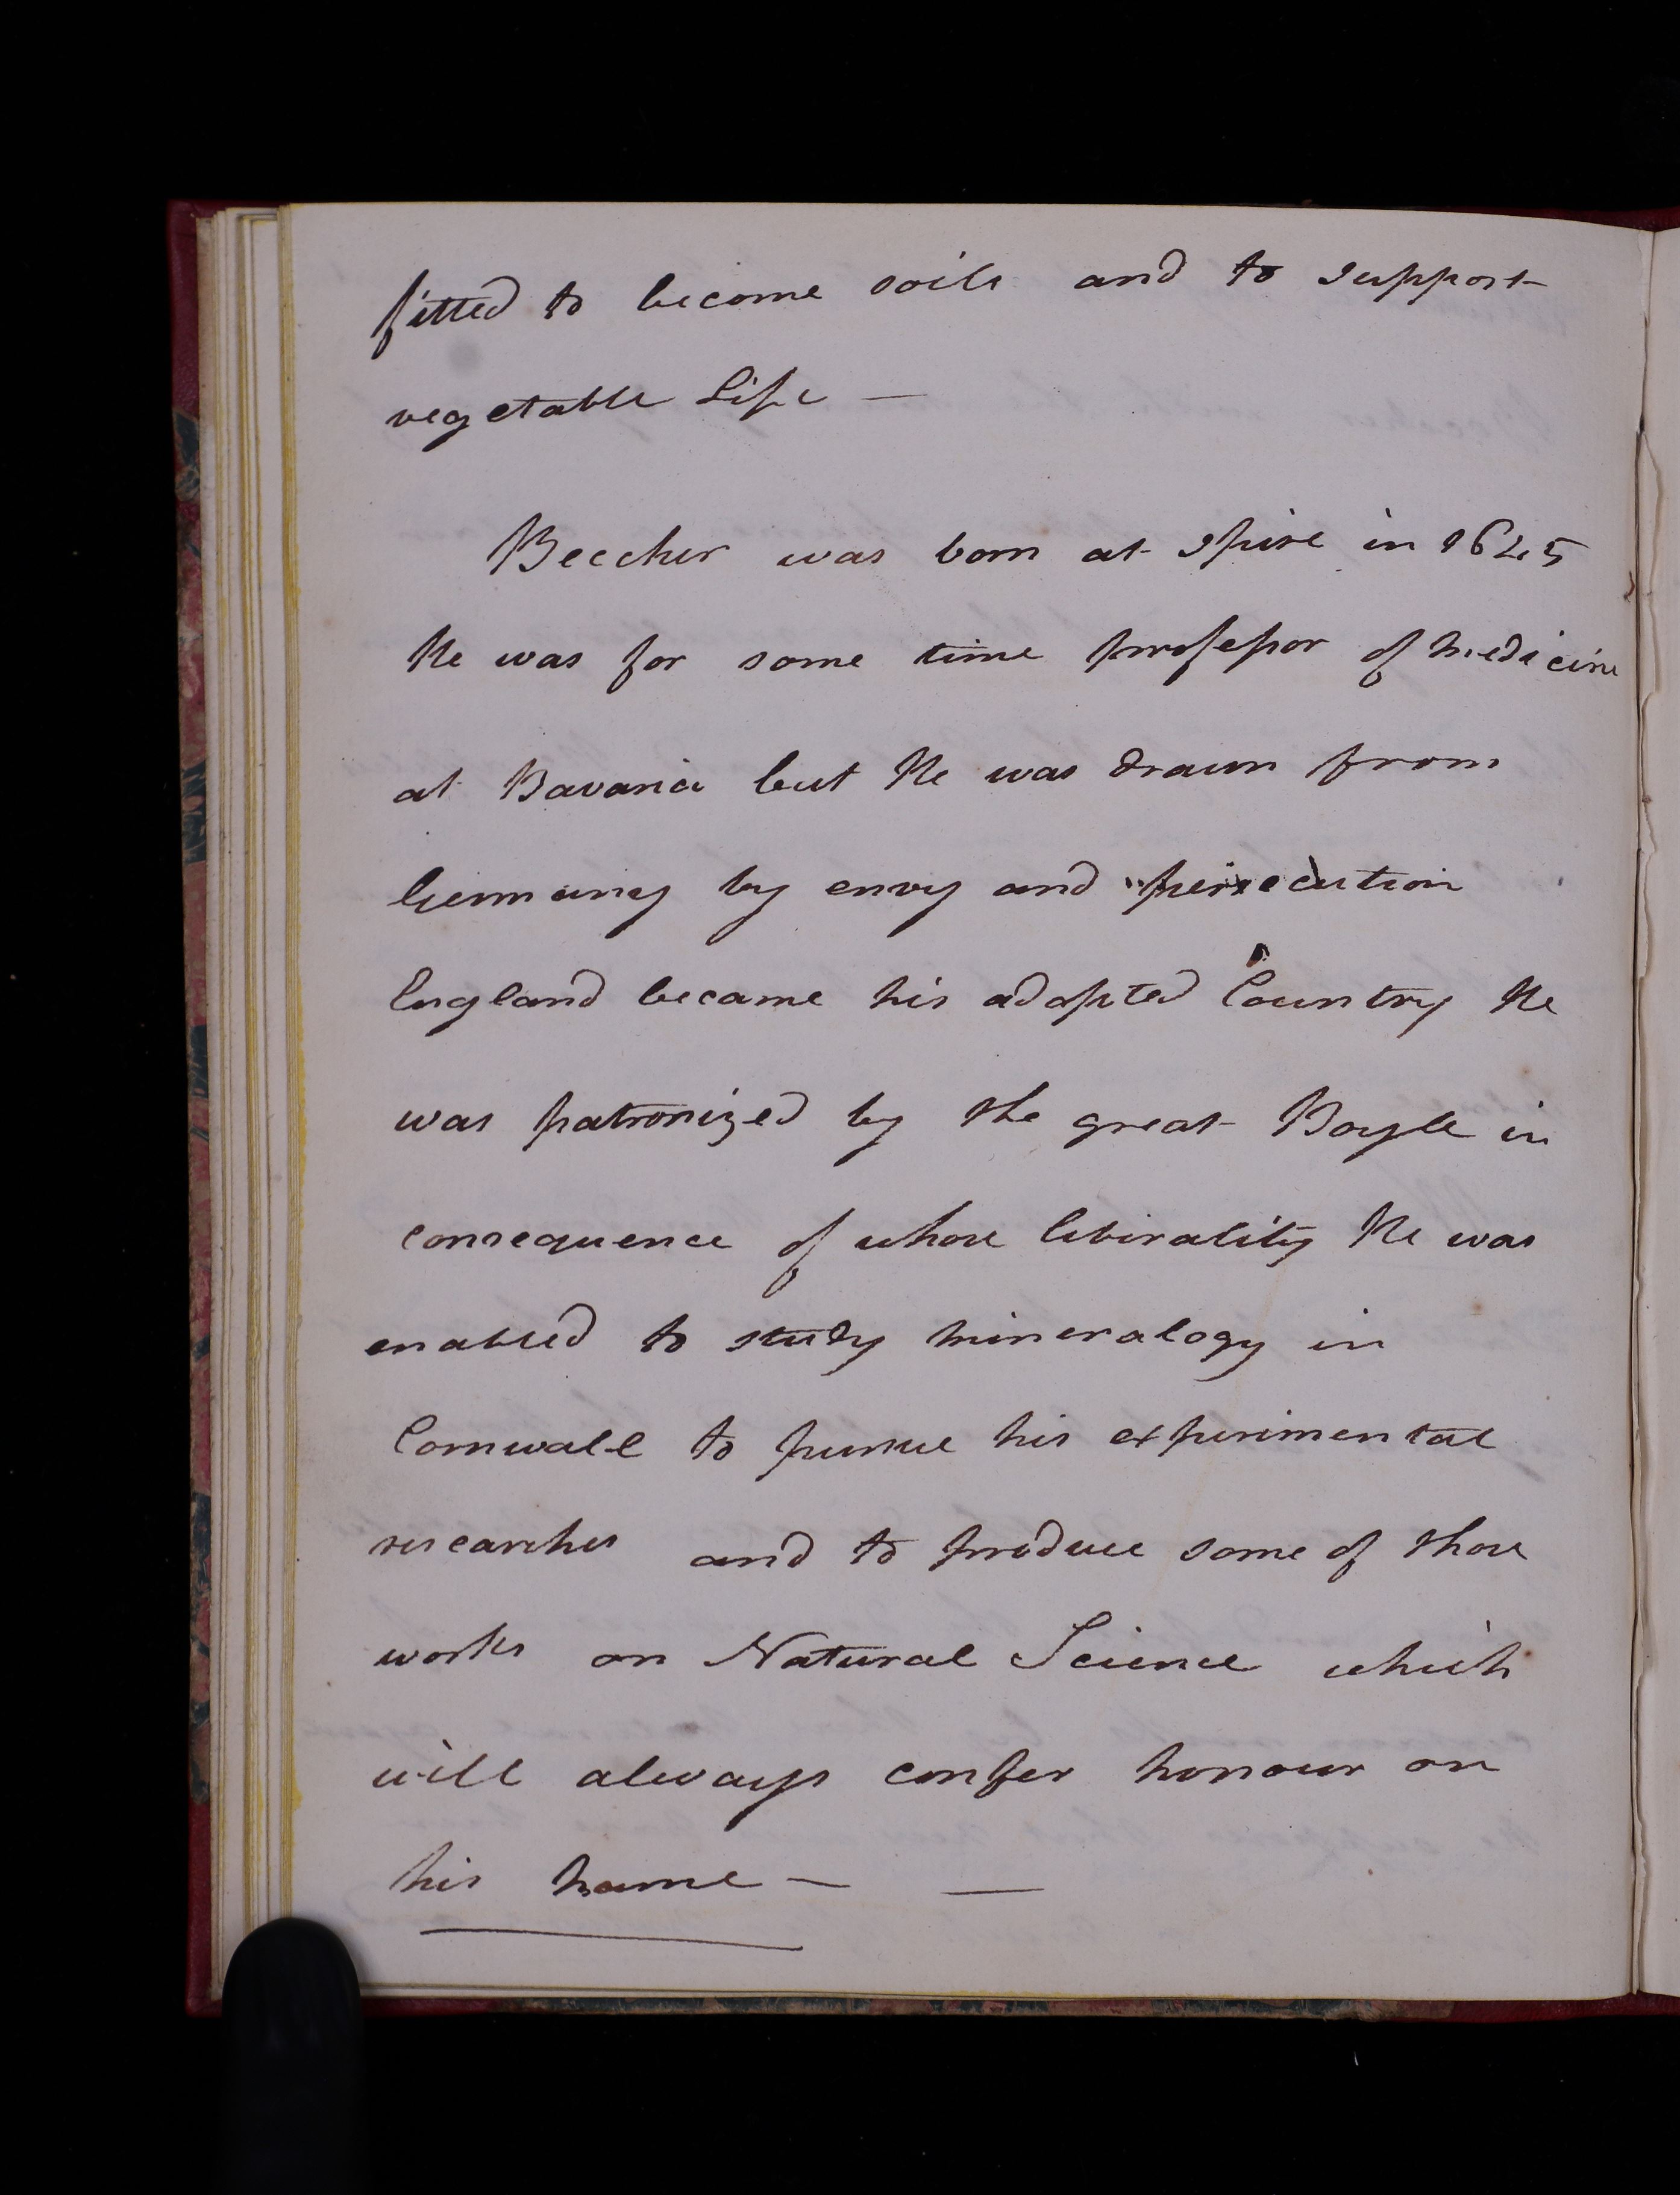 fitted to become soils and to support
vegetable Life —
Beecher was born at Spire in 1645
He was for some time professor of medicine
at Bavaria but He was drawn from
Germany by envy and persecution
England became his adopted Country He
was patronized by the great Boyle in
consequence of whose liberality He was
enabled to study mineralogy in
Cornwall to pursue his experimental
researches and to produce some of those
works on Natural Science which
will always confer honour on
his name — —